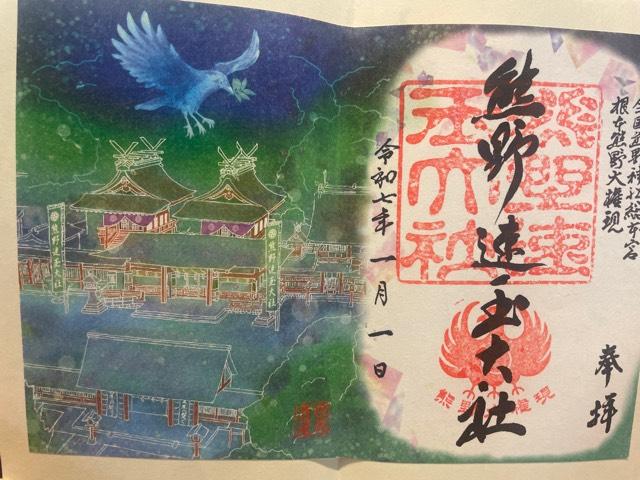 全国熊野神社総本宮
根本熊野大権現
奉拝
熊野速玉大社
熊野速玉大社
熊野権現
令和七年 一月 一日
熊野速玉大社
熊野速玉大社